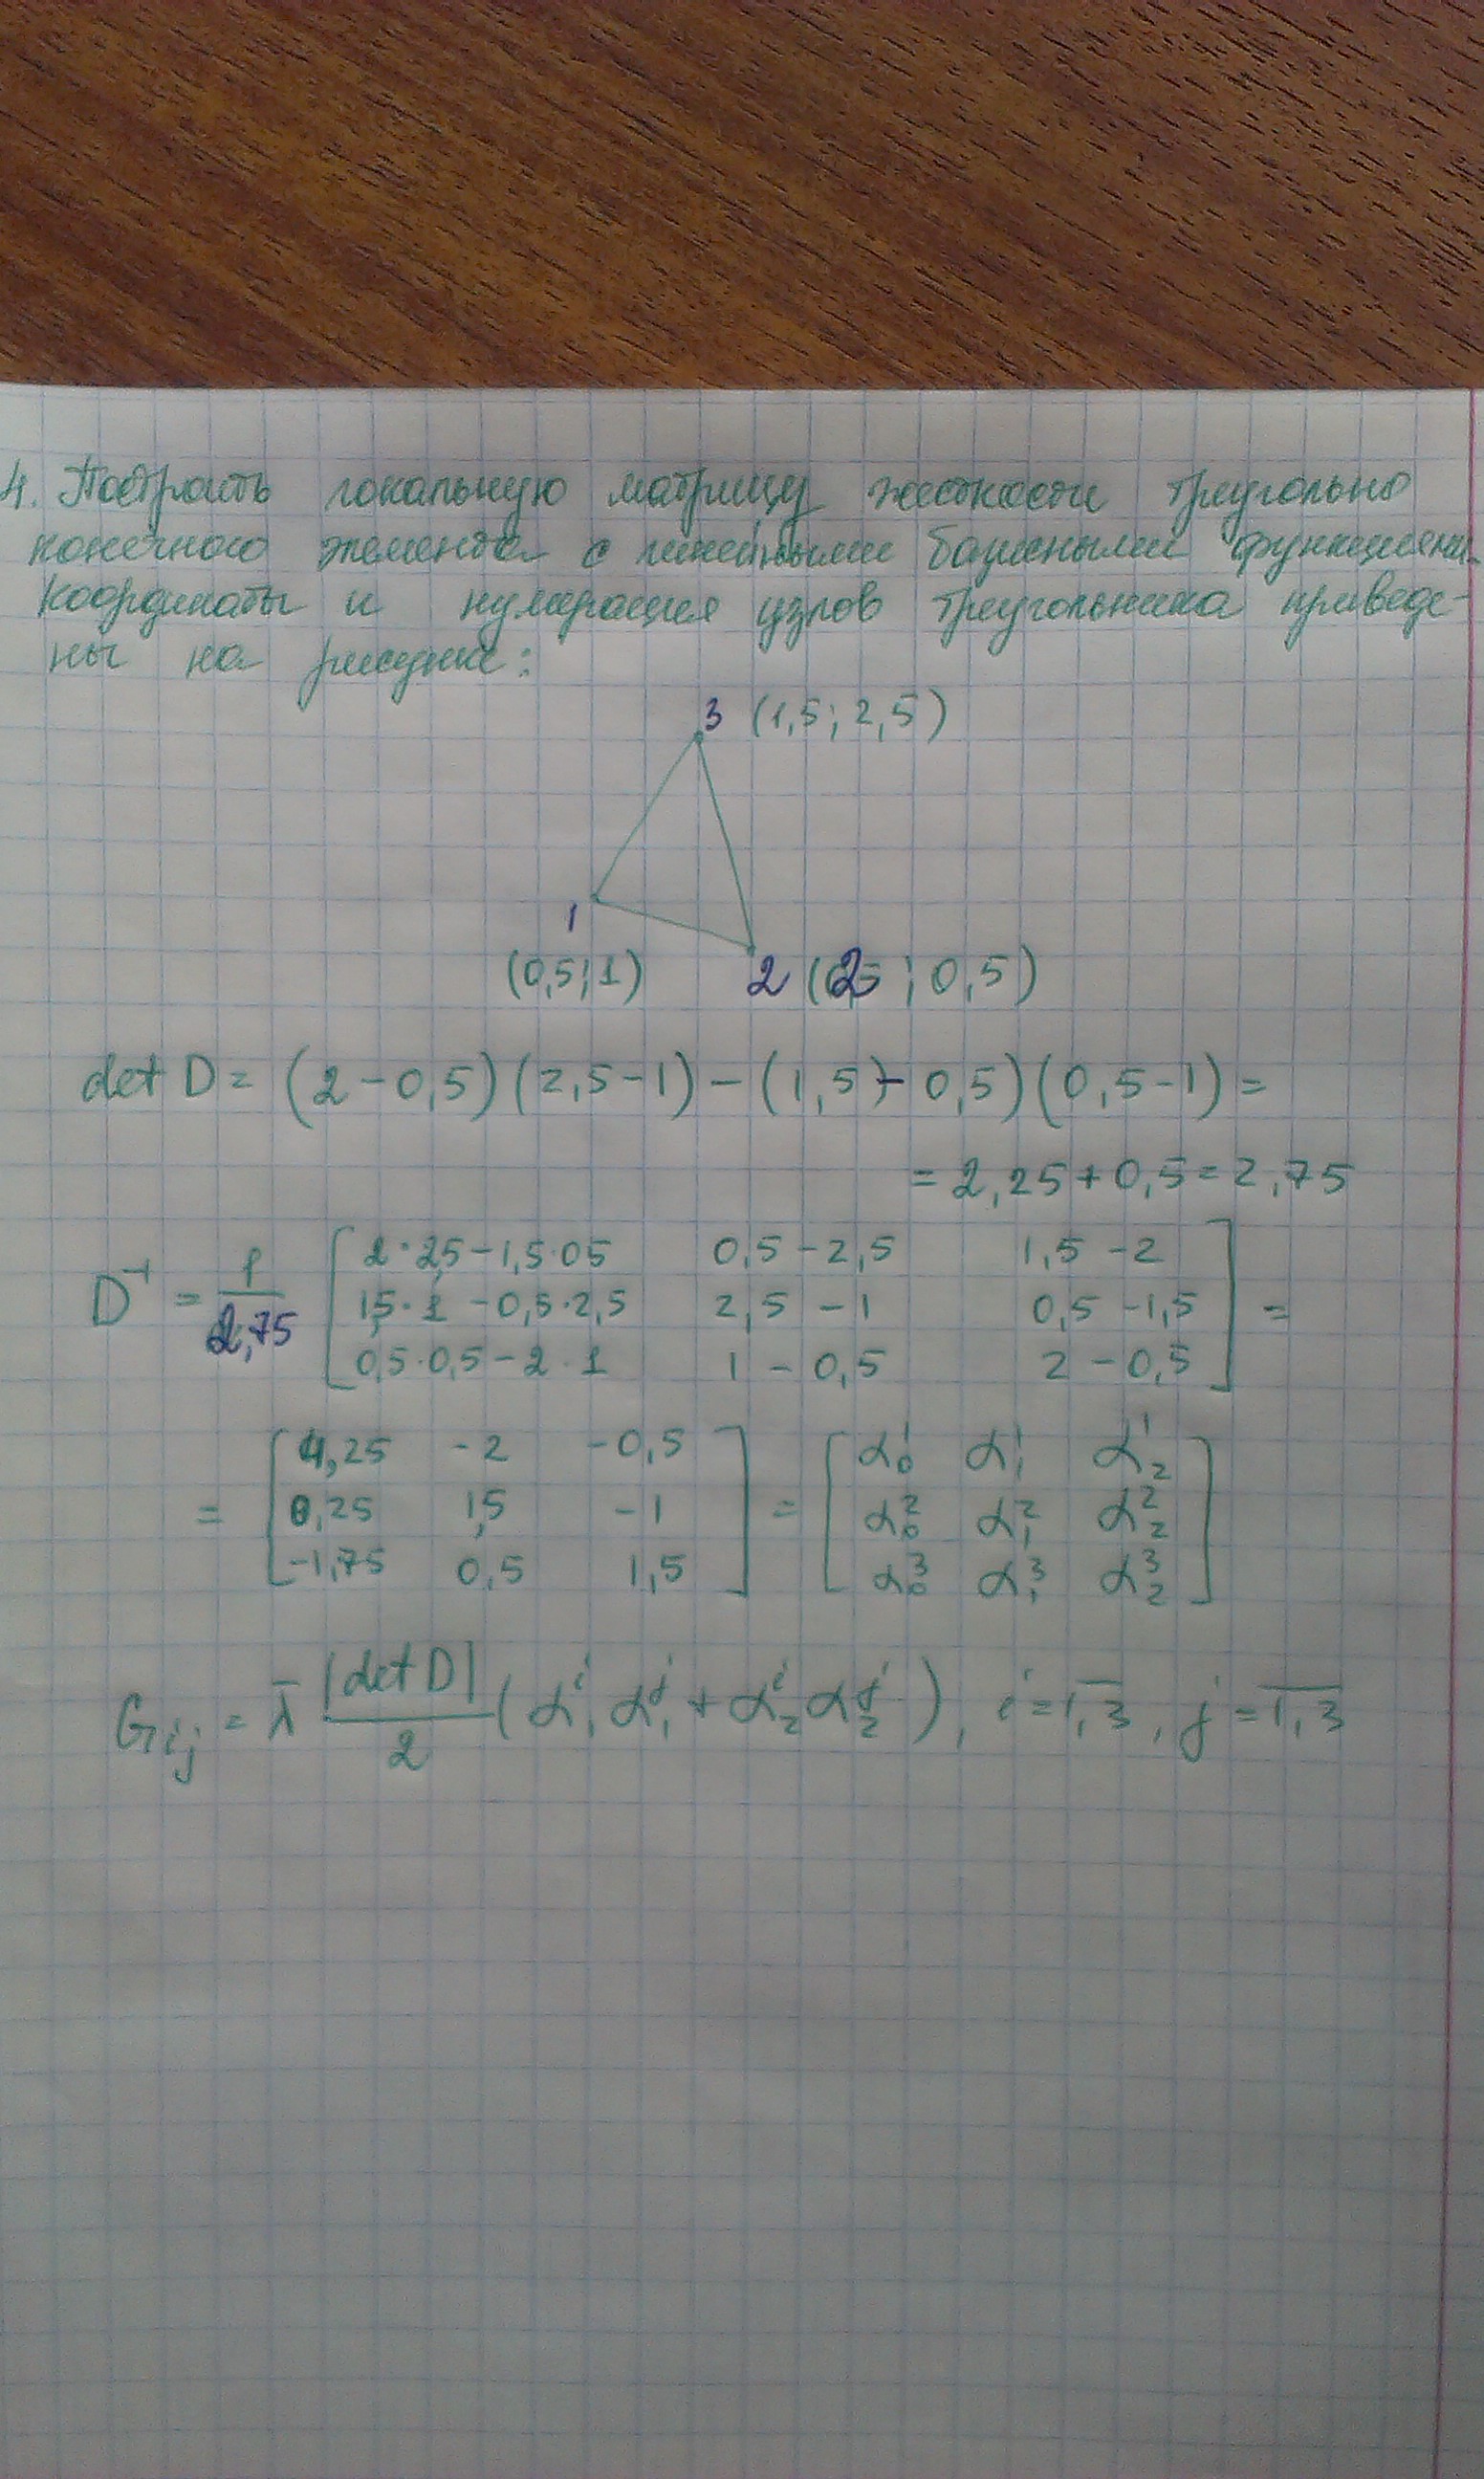 4. Построить локальную матрицу жесткости треугольно
конечного элемента с линейными базисными функциями.
Координаты и нумерация узлов треугольника приведе-
ны на рисунке:
3 (1,5; 2,5)
1
(0,5; 1) 2 (2; 0,5)
det D = (2 - 0,5)(2,5 - 1) - (1,5 - 0,5)(0,5 - 1) =
= 2,25 + 0,5 = 2,75
D⁻¹ = 1/2,75 [ 2·2,5 - 1,5·05 0,5 - 2,5 1,5 - 2
1,5·1 - 0,5·2,5 2,5 - 1 0,5 - 1,5
0,5·0,5 - 2·1 1 - 0,5 2 - 0,5 ] =
= [ 4,25 -2 -0,5
0,25 1,5 -1
-1,75 0,5 1,5 ] = [ α₀¹ α₁¹ α₂¹
α₀² α₁² α₂²
α₀³ α₁³ α₂³ ]
Gᵢⱼ = λ̄ |det D|/2 (α₁ⁱ α₁ʲ + α₂ⁱ α₂ʲ), i = 1,3, j = 1,3